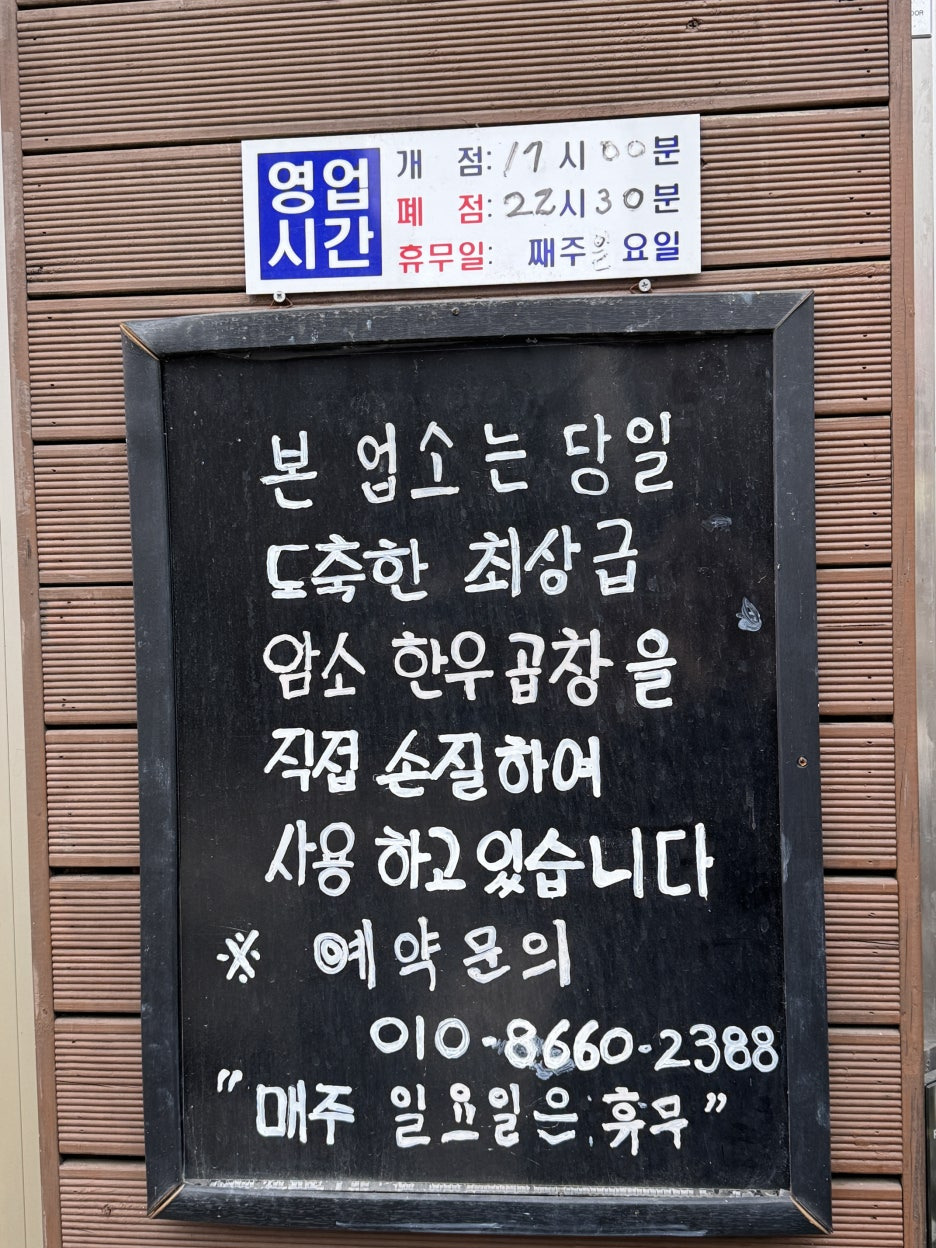 영업
시간
개 점: 17시 00분
폐 점: 22시 30분
휴무일: 째주 일 요일
본 업소는 당일
도축한 최상급
암소 한우곱창을
직접 손질하여
사용하고있습니다
※ 예약문의
010-8660-2388
"매주 일요일은 휴무"